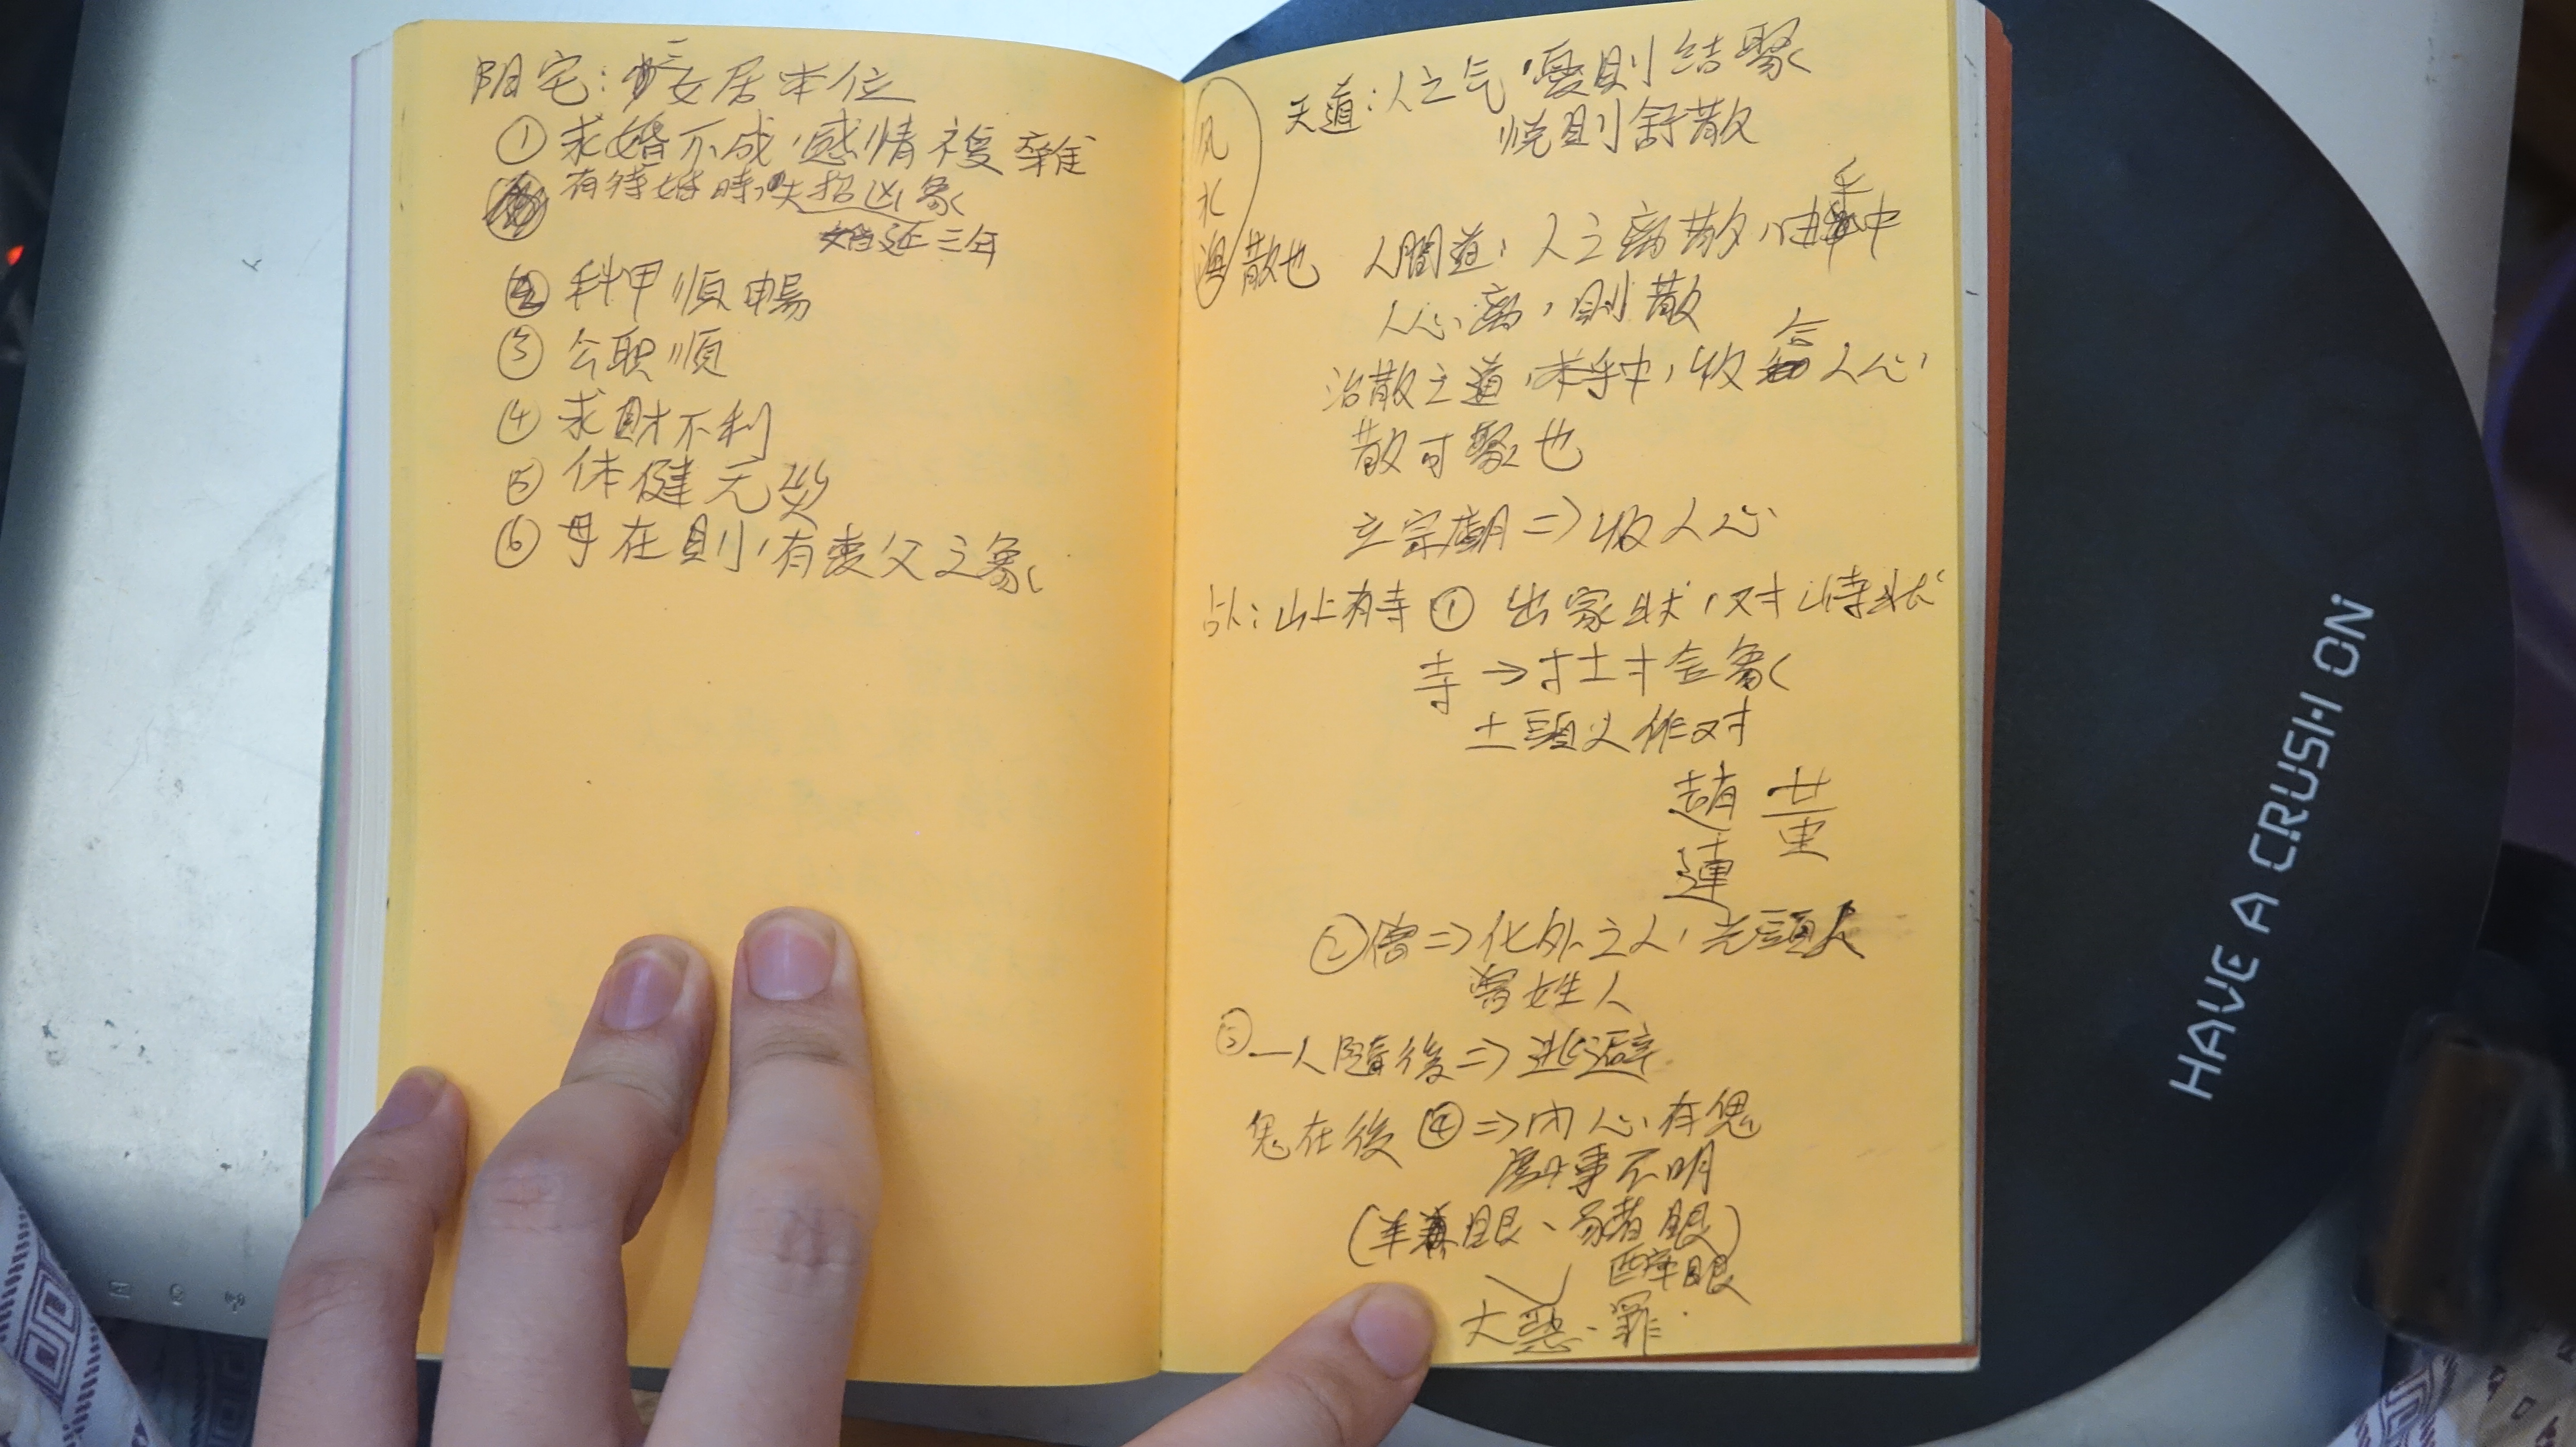 阴宅：三女居本位
① 求婚不成，感情複雜
有待婚時，失招凶象
婚延三年
② 科甲順暢
③ 公职順
④ 求財不利
⑤ 体健无災
⑥ 母在則，有喪父之象
风
水
渙 散也
天道：人之气，憂則結聚
悦則舒散
人間道：人之离散，由乎中
人心离，則散
治散之道，本乎中，收合人心，
散可聚也
立宗廟⇒收人心
卜：山上有寺 ① 出家狀，对峙狀
寺→寸土寸金象
土頭火作对
趙 董
連
② 僧⇒化外之人，光頭人
曾姓人
③ 一人隨後⇒逃避
鬼在後 ④⇒内心有鬼
事不明
(羊眼、豬眼)
醉眼
大惡、罪.
HAVE A CRUSH ON